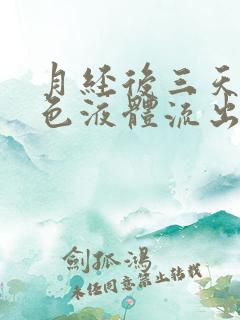 月經後三天
色液體流出
劍孤鴻
未经同意禁止转载